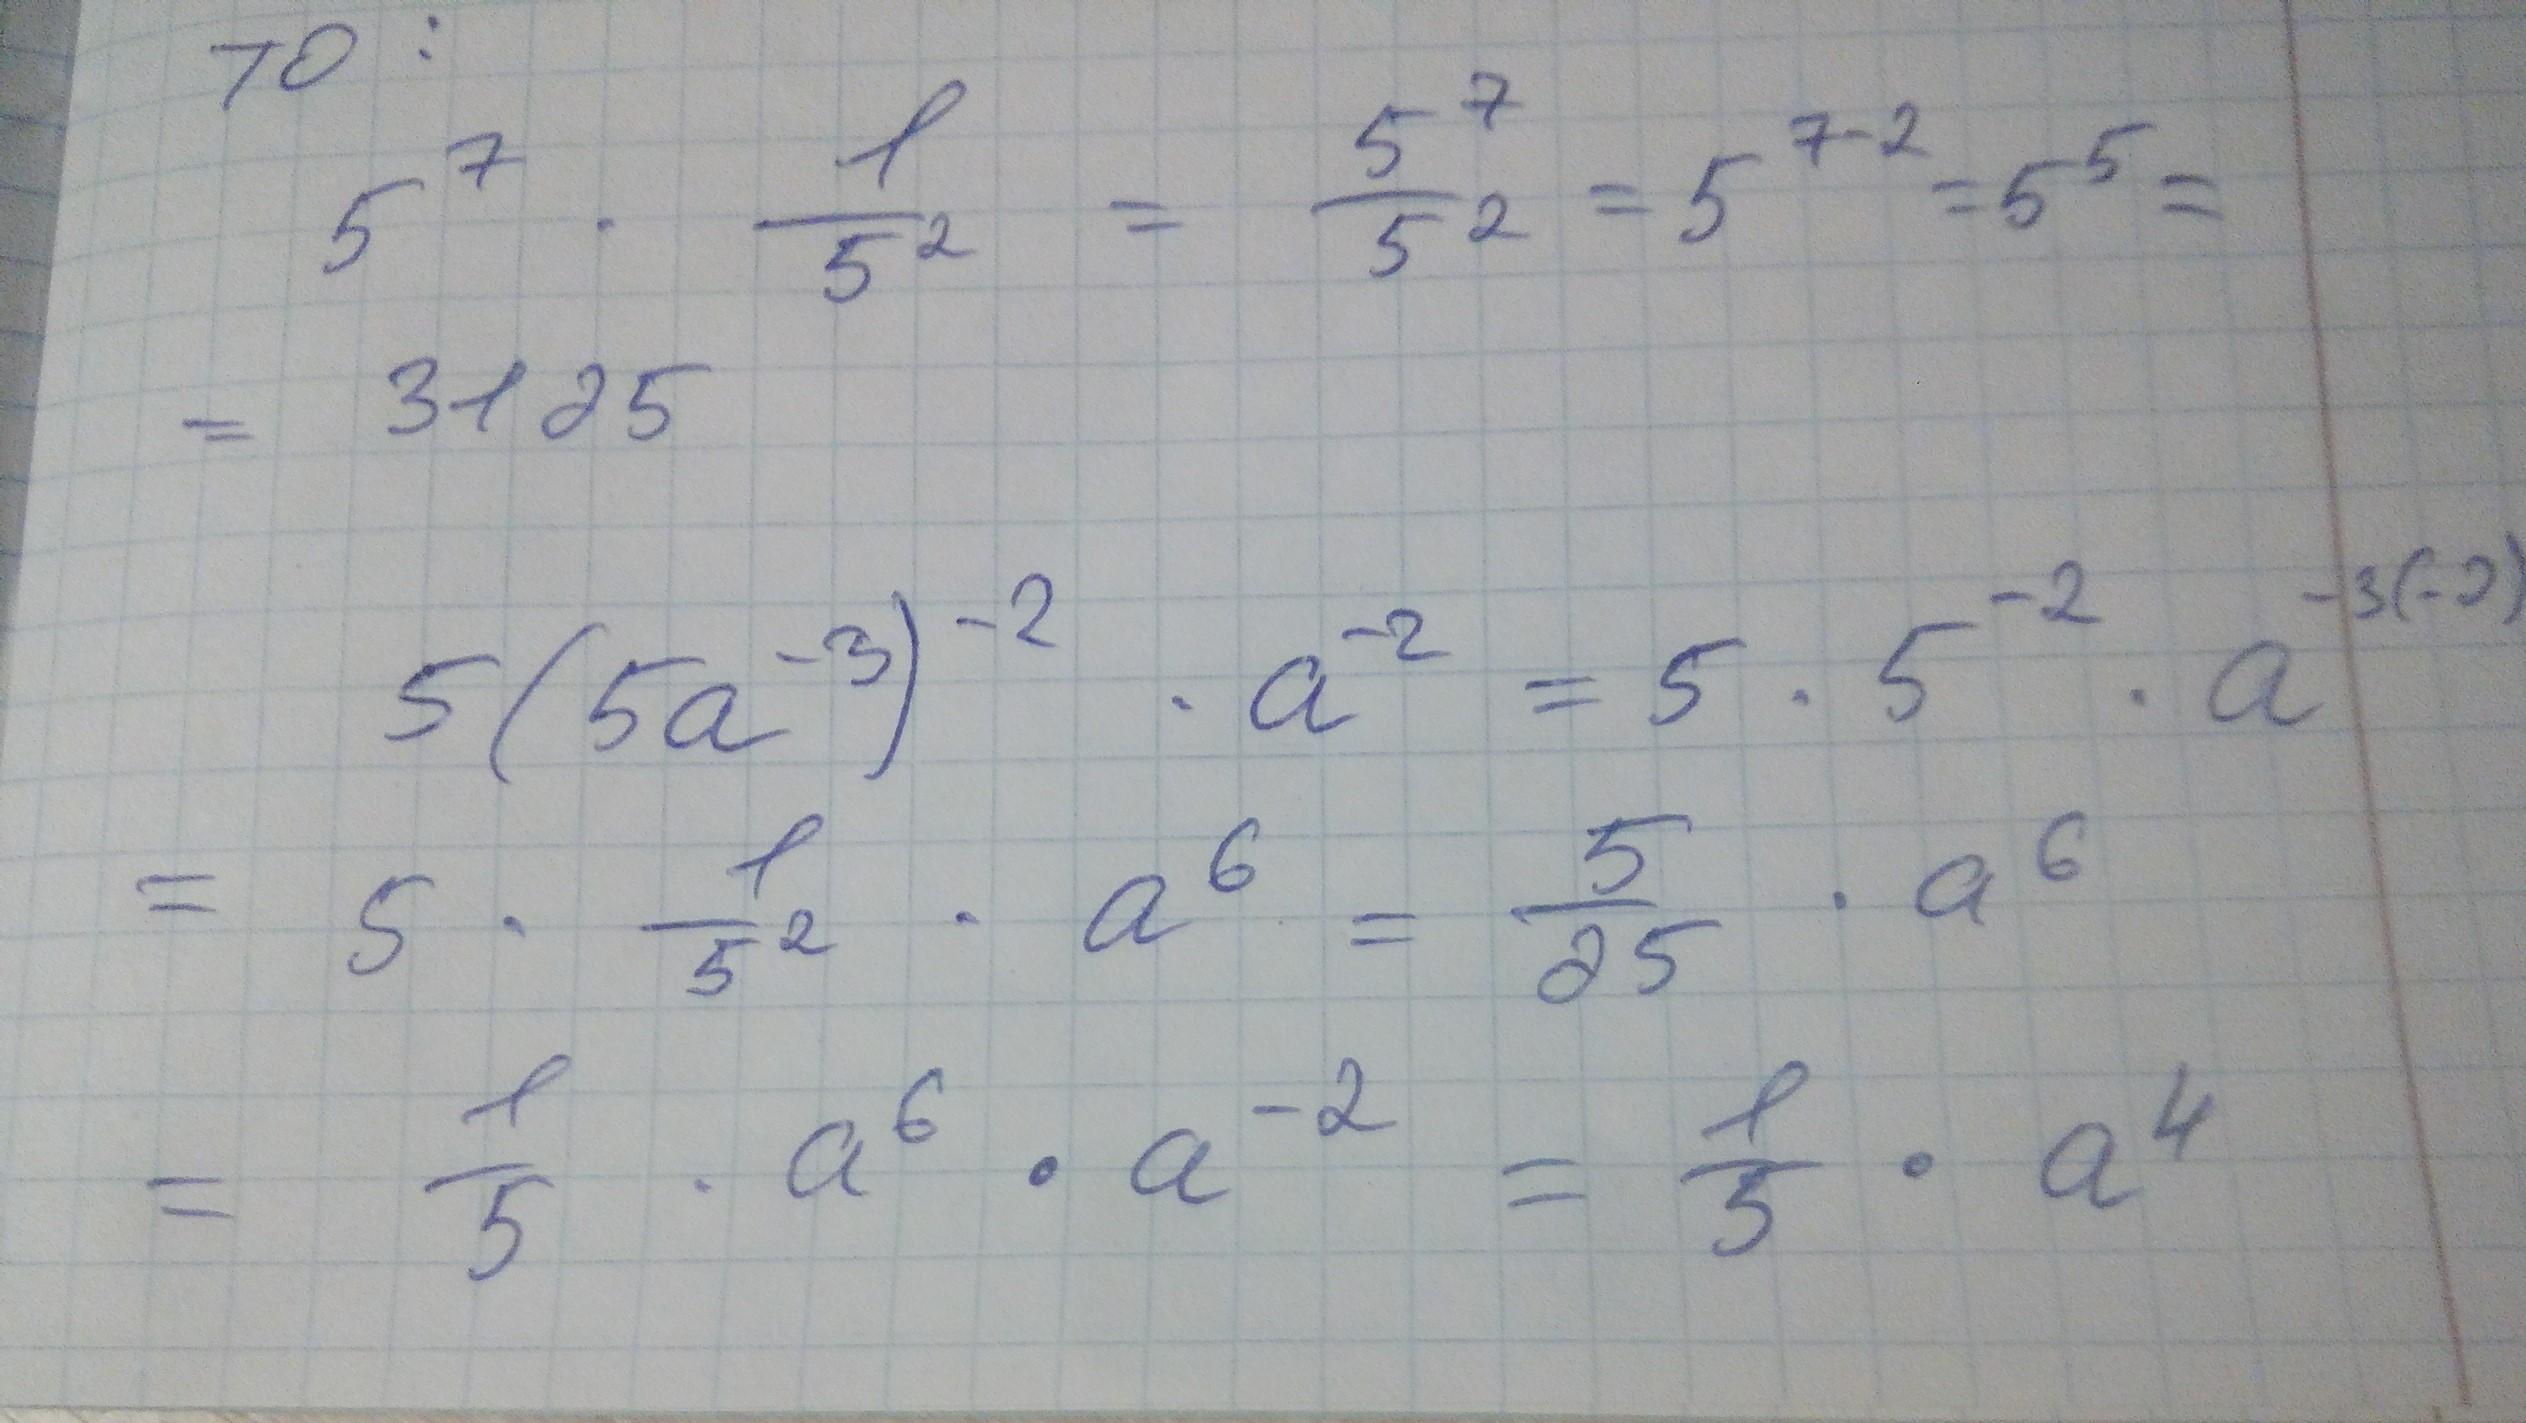 то:
5⁷ · 1/5² = 5⁷/5² = 5⁷⁻² = 5⁵ =
= 3125
5(5a⁻³)⁻² · a⁻² = 5 · 5⁻² · a⁻³⁽⁻²⁾
= 5 · 1/5² · a⁶ = 5/25 · a⁶
= 1/5 · a⁶ · a⁻² = 1/5 · a⁴